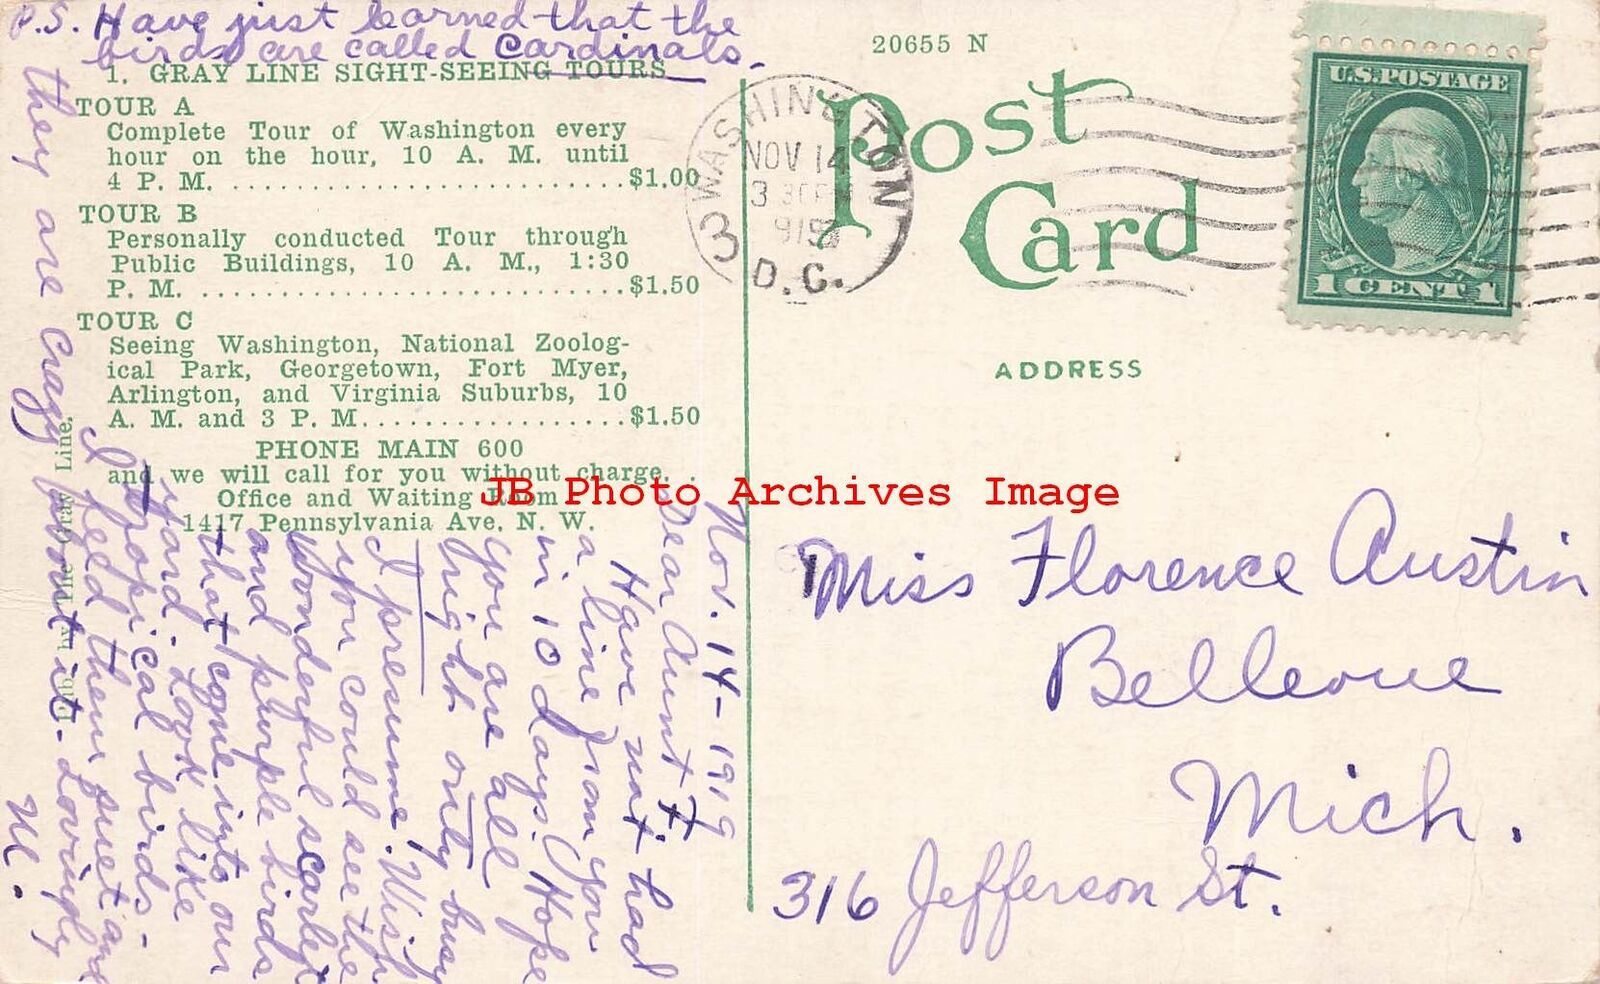 P.S. Have just learned that the
birds are called Cardinals.
1. GRAY LINE SIGHT-SEEING TOURS
TOUR A
Complete Tour of Washington every
hour on the hour, 10 A. M. until
4 P. M. ..........................$1.00
TOUR B
Personally conducted Tour through
Public Buildings, 10 A. M., 1:30
P. M. ............................$1.50
TOUR C
Seeing Washington, National Zoolog-
ical Park, Georgetown, Fort Myer,
Arlington, and Virginia Suburbs, 10
A. M. and 3 P. M..................$1.50
PHONE MAIN 600
and we will call for you without charge.
Office and Waiting Room
1417 Pennsylvania Ave. N. W.
Pub. by The Gray Line.
Nov. 14-1919
Dear Aunt F.
Have not had
a line from you
in 10 days. Hope
you are all
right only busy
I presume. Wish
you could see the
wonderful scarlet
and purple birds
that come into our
yard. Look like
tropical birds-
I feed them suet and
they are crazy about it. Lovingly
M.
20655 N
Post
Card
WASHINGTON
NOV 14
3
D.C.
3
U.S. POSTAGE
1 CENT 1
ADDRESS
JB Photo Archives Image
Miss Florence Austin
Bellevue
Mich.
316 Jefferson St.